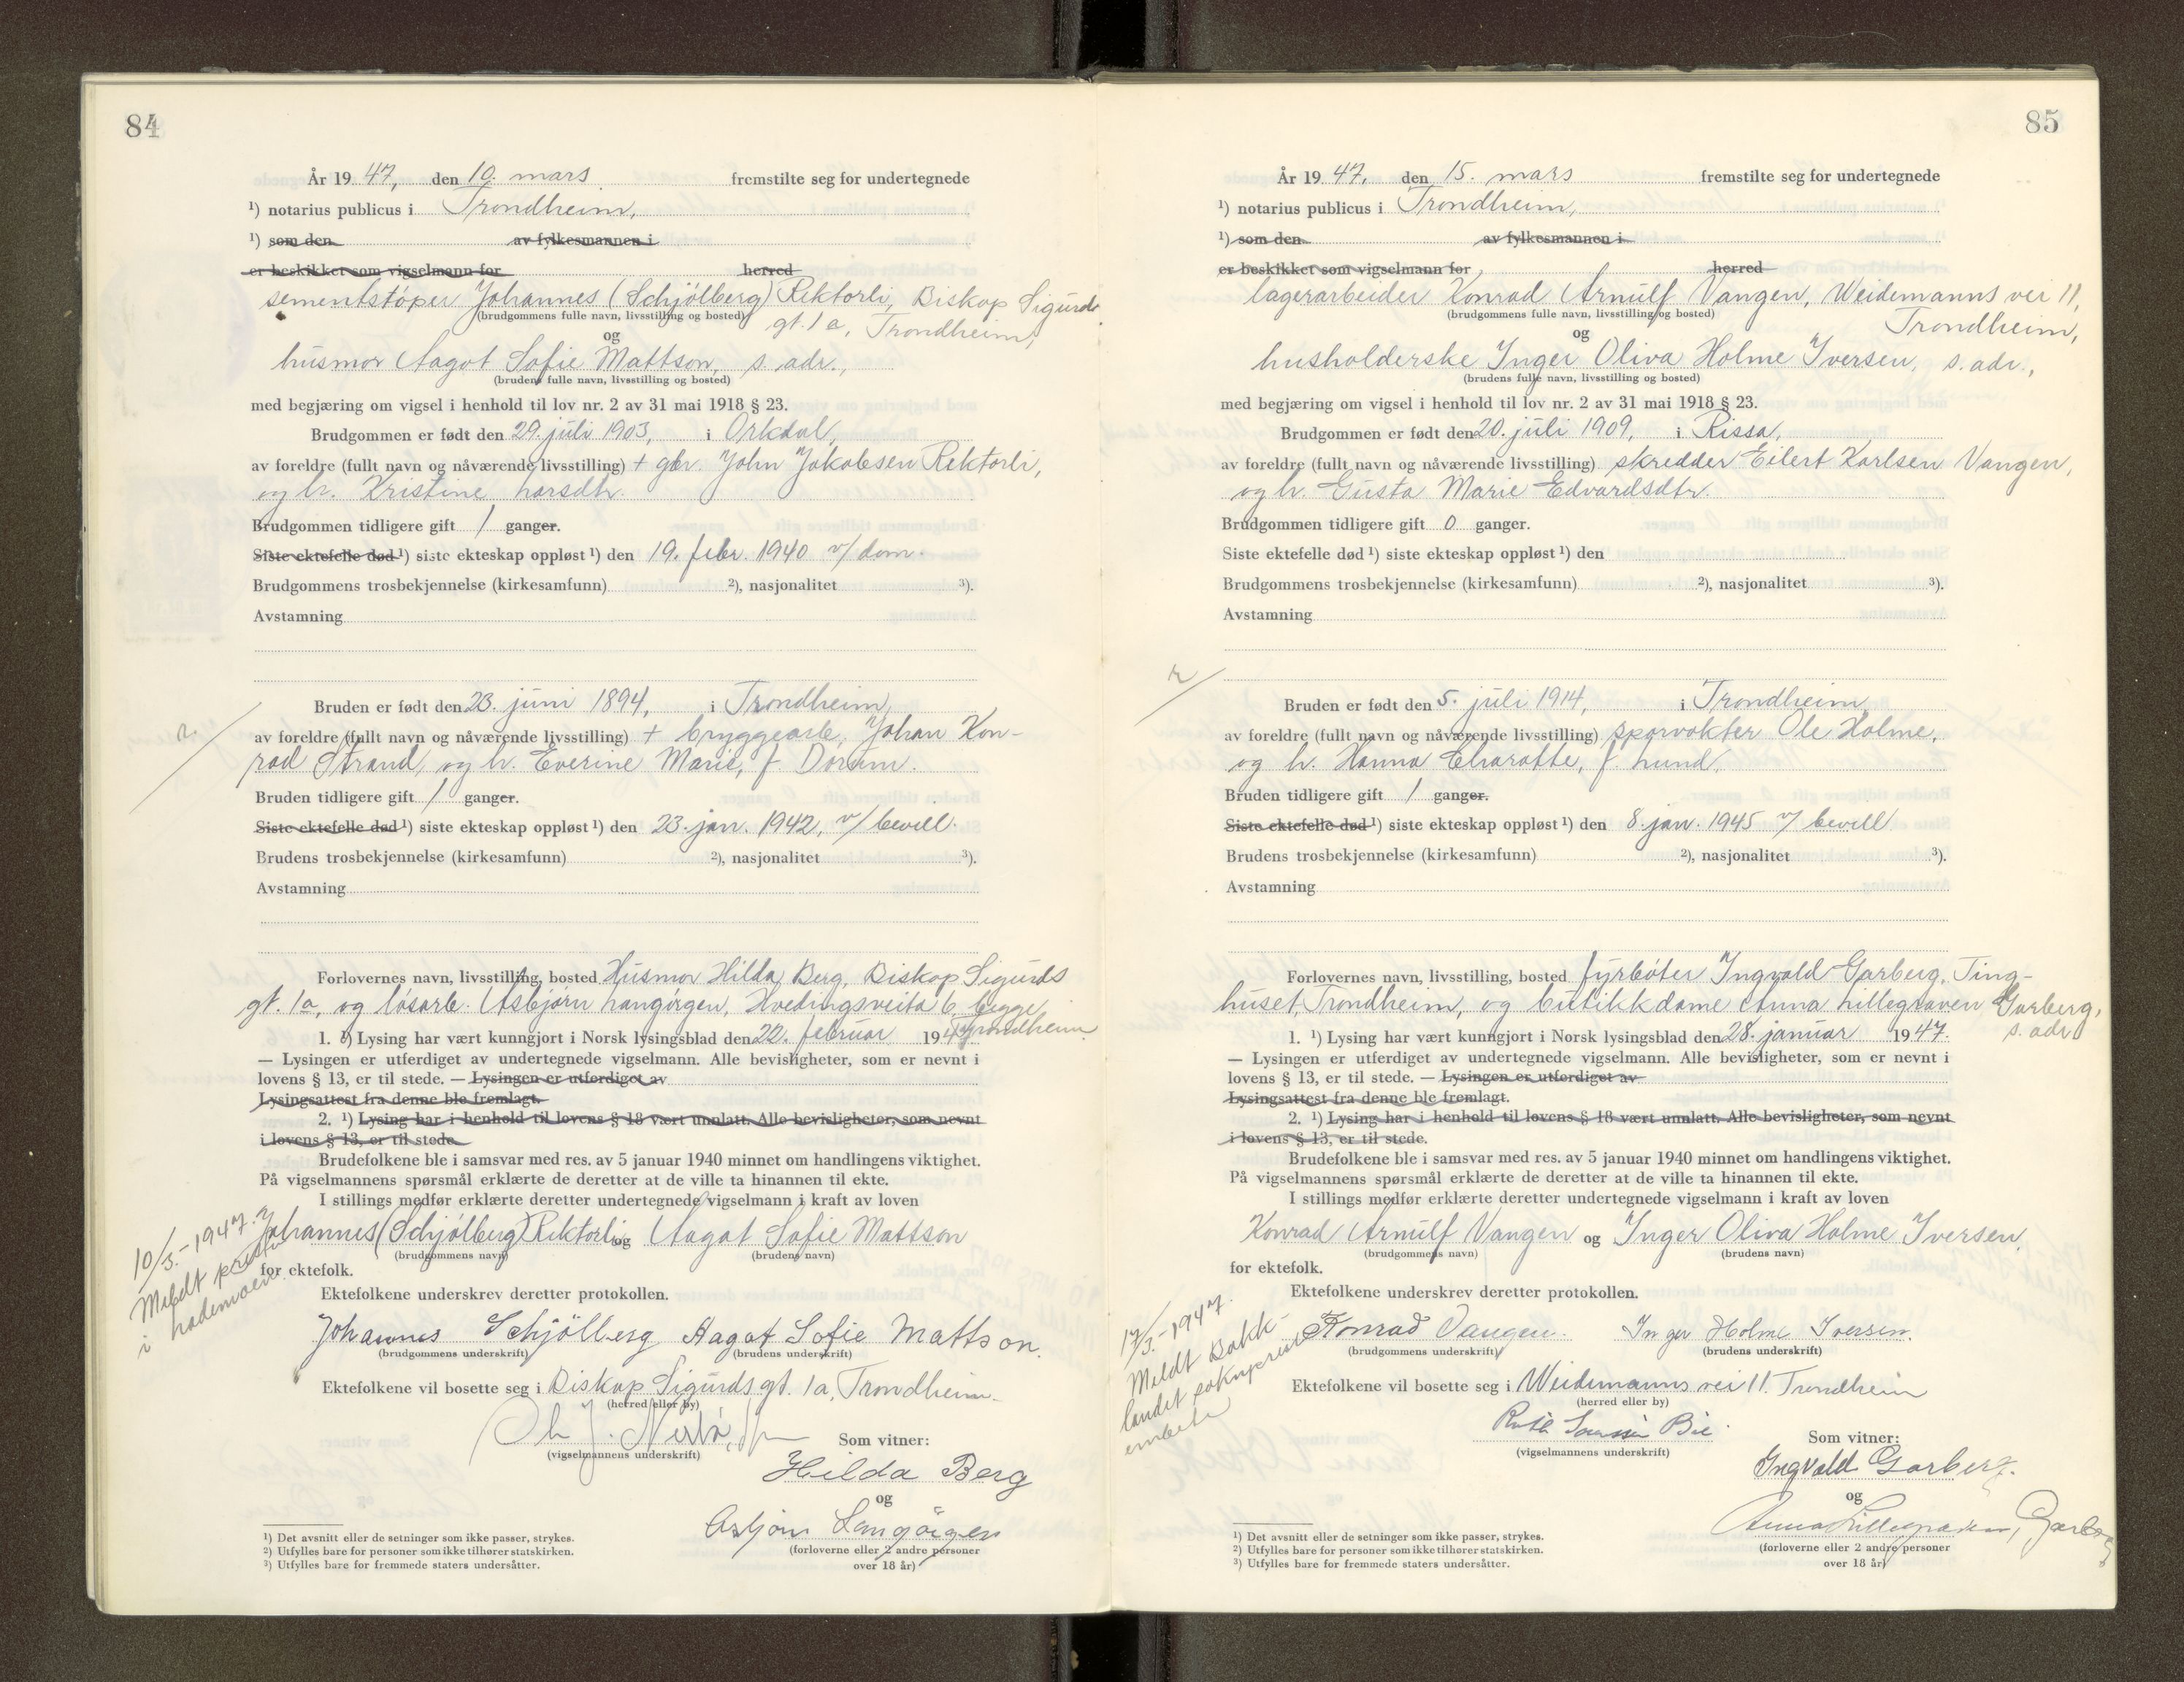 84
År 1947, den 10. mars fremstilte seg for undertegnede
¹) notarius publicus i Trondheim,
¹) som den av fylkesmannen i
er beskikket som vigselmann for herred
sementstøper Johannes (Schjølberg) Rektorli, Biskop Sigurds
(brudgommens fulle navn, livsstilling og bosted)
gt. 1a, Trondheim,
og
husmor Aagot Sofie Mattson, s. adr.,
(brudens fulle navn, livsstilling og bosted)
med begjæring om vigsel i henhold til lov nr. 2 av 31 mai 1918 § 23.
Brudgommen er født den 29. juli 1903, i Orkdal,
av foreldre (fullt navn og nåværende livsstilling) + gbr. John Jakobsen Rektorli,
og h. Kristine Larsdtr.
Brudgommen tidligere gift 1 ganger.
Siste ektefelle død ¹) siste ekteskap oppløst ¹) den 19. febr. 1940 v/ dom.
Brudgommens trosbekjennelse (kirkesamfunn) ²), nasjonalitet ³).
Avstamning
Bruden er født den 23. juni 1894, i Trondheim,
av foreldre (fullt navn og nåværende livsstilling) + bryggearb. Johan Kon-
rad Strand, og h. Everine Marie, f. Dorum.
Bruden tidligere gift 1 ganger.
Siste ektefelle død ¹) siste ekteskap oppløst ¹) den 23. jan. 1942, v/ bevill.
Brudens trosbekjennelse (kirkesamfunn) ²), nasjonalitet ³).
Avstamning
Forlovernes navn, livsstilling, bosted Husmor Hilda Berg, Biskop Sigurds
gt. 1a, og løsarb. Asbjørn Langørgen, Hvedingsveita 6, begge
Trondheim
1. ¹) Lysing har vært kunngjort i Norsk lysingsblad den 22. februar 1947
— Lysingen er utferdiget av undertegnede vigselmann. Alle bevisligheter, som er nevnt i
lovens § 13, er til stede. — Lysingen er utferdiget av
Lysingsattest fra denne ble fremlagt.
2. ¹) Lysing har i henhold til lovens § 18 vært unnlatt. Alle bevisligheter, som nevnt
i lovens § 13, er til stede.
Brudefolkene ble i samsvar med res. av 5 januar 1940 minnet om handlingens viktighet.
På vigselmannens spørsmål erklærte de deretter at de ville ta hinannen til ekte.
I stillings medfør erklærte deretter undertegnede vigselmann i kraft av loven
Johannes (Schjølberg) Rektorli og Aagot Sofie Mattson
(brudgommens navn) (brudens navn)
for ektefolk.
10/3.-1947.
Meldt presten
i Lademoen.
Ektefolkene underskrev deretter protokollen.
Johannes Schjölberg Aagot Sofie Mattson.
(brudgommens underskrift) (brudens underskrift)
Ektefolkene vil bosette seg i Biskop Sigurds gt. 1a, Trondheim.
(herred eller by)
(vigselmannens underskrift)
Som vitner:
Hilda Berg
og
Asbjørn Langörgen
(forloverne eller 2 andre personer
over 18 år)
¹) Det avsnitt eller de setninger som ikke passer, strykes.
²) Utfylles bare for personer som ikke tilhører statskirken.
³) Utfylles bare for fremmede staters undersåtter.
85
År 1947, den 15. mars fremstilte seg for undertegnede
¹) notarius publicus i Trondheim,
¹) som den av fylkesmannen i
er beskikket som vigselmann for herred
lagerarbeider Konrad Arnulf Vangen, Weidemanns vei 11,
(brudgommens fulle navn, livsstilling og bosted)
Trondheim,
og
husholderske Inger Oliva Holme Iversen, s. adr.,
(brudens fulle navn, livsstilling og bosted)
med begjæring om vigsel i henhold til lov nr. 2 av 31 mai 1918 § 23.
Brudgommen er født den 20. juli 1909, i Rissa,
av foreldre (fullt navn og nåværende livsstilling) skredder Eilert Karlsen Vangen,
og h. Gusta Marie Edvardsdtr.
Brudgommen tidligere gift 0 ganger.
Siste ektefelle død ¹) siste ekteskap oppløst ¹) den
Brudgommens trosbekjennelse (kirkesamfunn) ²), nasjonalitet ³).
Avstamning
Bruden er født den 5. juli 1914, i Trondheim,
av foreldre (fullt navn og nåværende livsstilling) sporvokter Ole Holme,
og h. Hanna Charotte, f. Lund,
Bruden tidligere gift 1 ganger.
Siste ektefelle død ¹) siste ekteskap oppløst ¹) den 8. jan. 1945 v/ bevill
Brudens trosbekjennelse (kirkesamfunn) ²), nasjonalitet ³).
Avstamning
Forlovernes navn, livsstilling, bosted fyrbøter Ingvald Garberg, Ting-
huset, Trondheim, og butikkdame Anna Lillegraven Garberg,
s. adr.
1. ¹) Lysing har vært kunngjort i Norsk lysingsblad den 28. januar 1947.
— Lysingen er utferdiget av undertegnede vigselmann. Alle bevisligheter, som er nevnt i
lovens § 13, er til stede. — Lysingen er utferdiget av
Lysingsattest fra denne ble fremlagt.
2. ¹) Lysing har i henhold til lovens § 18 vært unnlatt. Alle bevisligheter, som nevnt
i lovens § 13, er til stede.
Brudefolkene ble i samsvar med res. av 5 januar 1940 minnet om handlingens viktighet.
På vigselmannens spørsmål erklærte de deretter at de ville ta hinannen til ekte.
I stillings medfør erklærte deretter undertegnede vigselmann i kraft av loven
Konrad Arnulf Vangen og Inger Oliva Holme Iversen,
(brudgommens navn) (brudens navn)
for ektefolk.
17/3.-1947.
Meldt Bakk-
landet sokneprest-
embete
Ektefolkene underskrev deretter protokollen.
Konrad Vangen. Inger Holme Iversen.
(brudgommens underskrift) (brudens underskrift)
Ektefolkene vil bosette seg i Weidemanns vei 11. Trondheim
(herred eller by)
(vigselmannens underskrift)
Som vitner:
Ingvald Garberg.
og
Anna Lillegraven, Garberg
(forloverne eller 2 andre personer
over 18 år)
¹) Det avsnitt eller de setninger som ikke passer, strykes.
²) Utfylles bare for personer som ikke tilhører statskirken.
³) Utfylles bare for fremmede staters undersåtter.